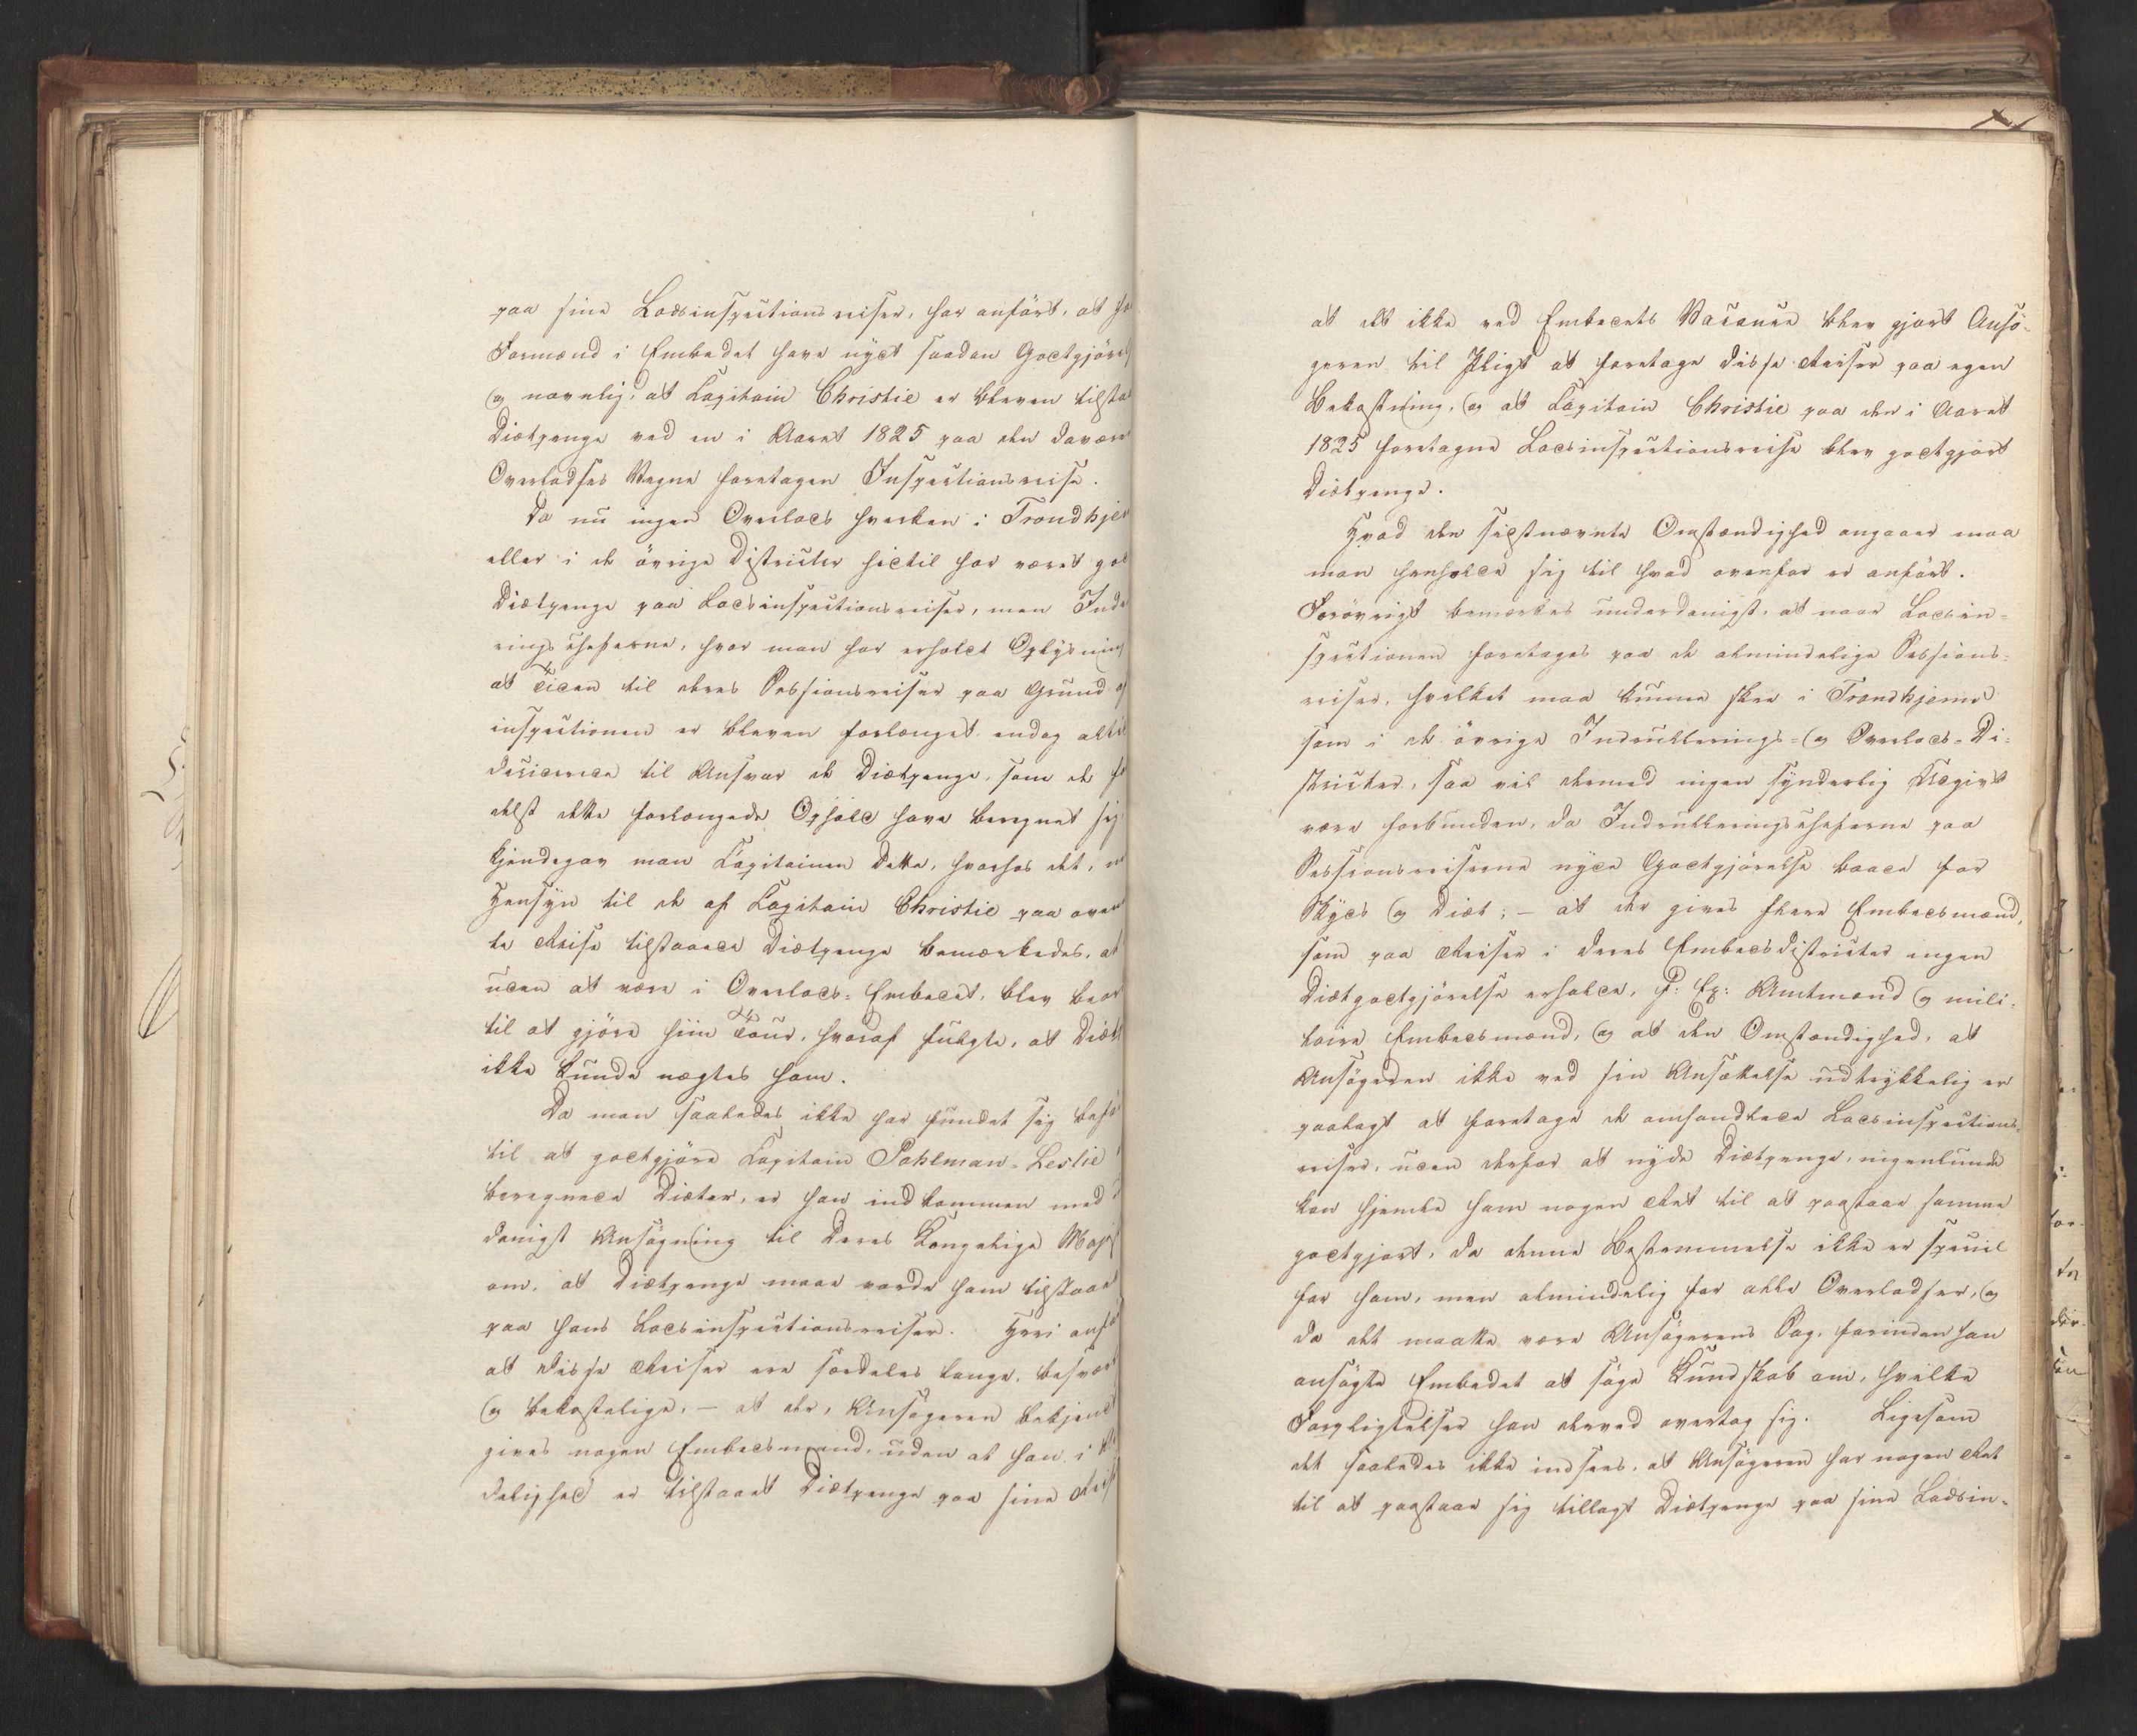 paa sine Lodsinspectionsreiser, har anført, at
Formænd i Embedet have nydt saadan Godtgjörel
og navnlig, at Capitain Christie er bleven tilsta
Diætpenge ved en i Aaret 1825 paa den daværen
Overlodses Vegne foretagen Inspectionsreise.
Da nu ingen Overlods hverken i Trondhjem
eller i de övrige Districter hidtil har været god
Diætpenge paa Lodsinspectionsreiser, men Indr
rings Cheferne, hvor man har erholdt Oplysning
at Tiden til deres Sessionsreiser paa Grund
inspectionen er bleven forlænget endog altid
decideres til Ansvar de Diætpenge, som de
delst dette forlængede Ophold have beregnet sig
kjendegav man Capitainen dette, hvorhos det,
Hensyn til de af Capitain Christie paa oven
te Reise tilstaaede Diætpenge bemærkedes, at
uden at være i Overlods-Embedet, blev beor
til at gjöre hiin Tour, hvoraf fulgte, at Diæt
ikke kunde nægtes ham.
Da man saaledes ikke har fundet sig beføi
til at godtgjöre Capitain Pahlman-Leslie
beregnede Diæter, er han indkommen med
danigst Ansøgning til Deres Kongelige Maje
om, at Diætpenge maae vorde ham tilstaaet
paa hans Lodsinspectionsreiser. Heri anfö
at disse Reiser ere særdeles lange, besvær
og bekostelige, – at der, Ansøgeren bekjendt
gives nogen Embedsmand, uden at han i
delighed er tilstaaet Diætpenge paa sine Reis
at det ikke ved Embedets Vacance blev gjort Ansö-
geren til Pligt at foretage disse Reiser paa egen
Bekostning, og at Capitain Christie paa den i Aaret
1825 foretagne Lodsinspectionsreise blev godtgjort
Diætpenge.
Hvad den sidstnævnte Omstændighed angaaer maa
man henholde sig til hvad ovenfor er anfört.
Forövrigt bemærkes underdanigst, at naar Lodsin-
spectionen foretages paa de almindelige Sessions-
reiser, hvilket maa kunne skee i Trondhjems
som i de övrige Indrullerings- og Overlods-Di-
stricter, saa vil dermed ingen synderlig Udgivt
være forbunden, da Indrulleringscheferne paa
Sessionsreiserne nyde Godtgjörelse baade for
Skyds og Diæt; – at der gives flere Embedsmænd,
som paa Reiser i deres Embedsdistricter ingen
Diætgodtgjörelse erholde, f: Ex: Amtmænd og mili-
taire Embedsmænd, og at den Omstændighed, at
Ansögeren ikke ved sin Ansættelse udtrykkelig er
paalagt at foretage de omhandlede Lodsinspections-
reiser, uden derfor at nyde Diætpenge, ingenlunde
kan hjemle ham nogen Ret til at paastaae samme
godtgjort, da denne Bestemmelse ikke er speciel
for ham, men almindelig for alle Overlodser, og
da det maatte være Ansögerens Sag, forinden han
ansögte Embedet at söge Kundskab om, hvilke
Forpligtelser han derved overtog sig. Ligesom
det saaledes ikke indsees, at Ansögeren har nogen Ret
til at paastaae sig tillagt Diætpenge paa sine Lodsin-